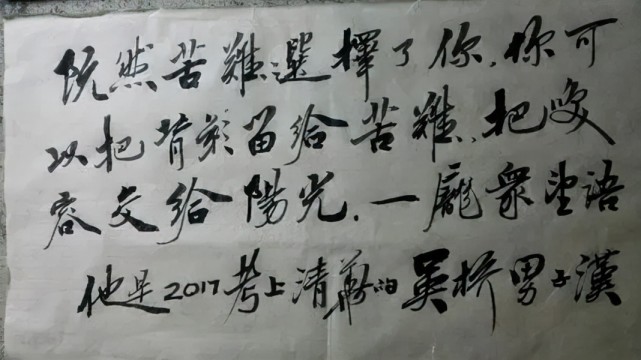 既然苦難選擇了你,你可
以把背影留给苦難,把笑
容交给陽光.一龐衆望语
他是2017考上清華的吴桥男子漢